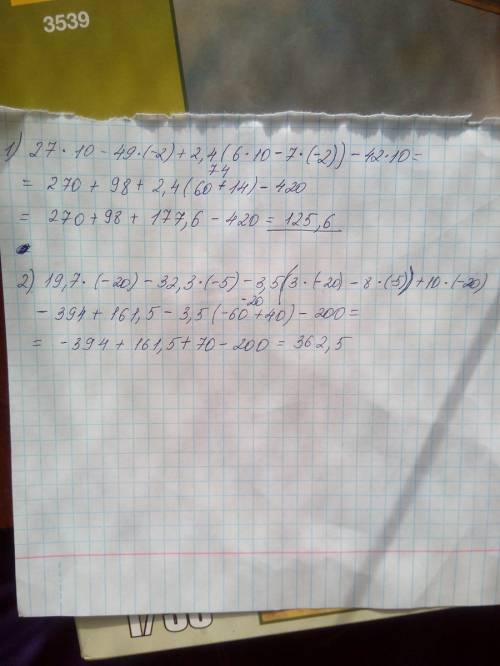 3539
1) 27 · 10 - 49 · (-2) + 2,4 ( 6 · 10 - 7 · (-2)) - 42 · 10 =
74
= 270 + 98 + 2,4 (60 + 14) - 420
= 270 + 98 + 177,6 - 420 = 125,6
2) 19,7 · (-20) - 32,3 · (-5) - 3,5 (3 · (-20) - 8 · (-5)) + 10 · (-20)
-20
- 394 + 161,5 - 3,5 (-60 + 40) - 200 =
= - 394 + 161,5 + 70 - 200 = 362,5